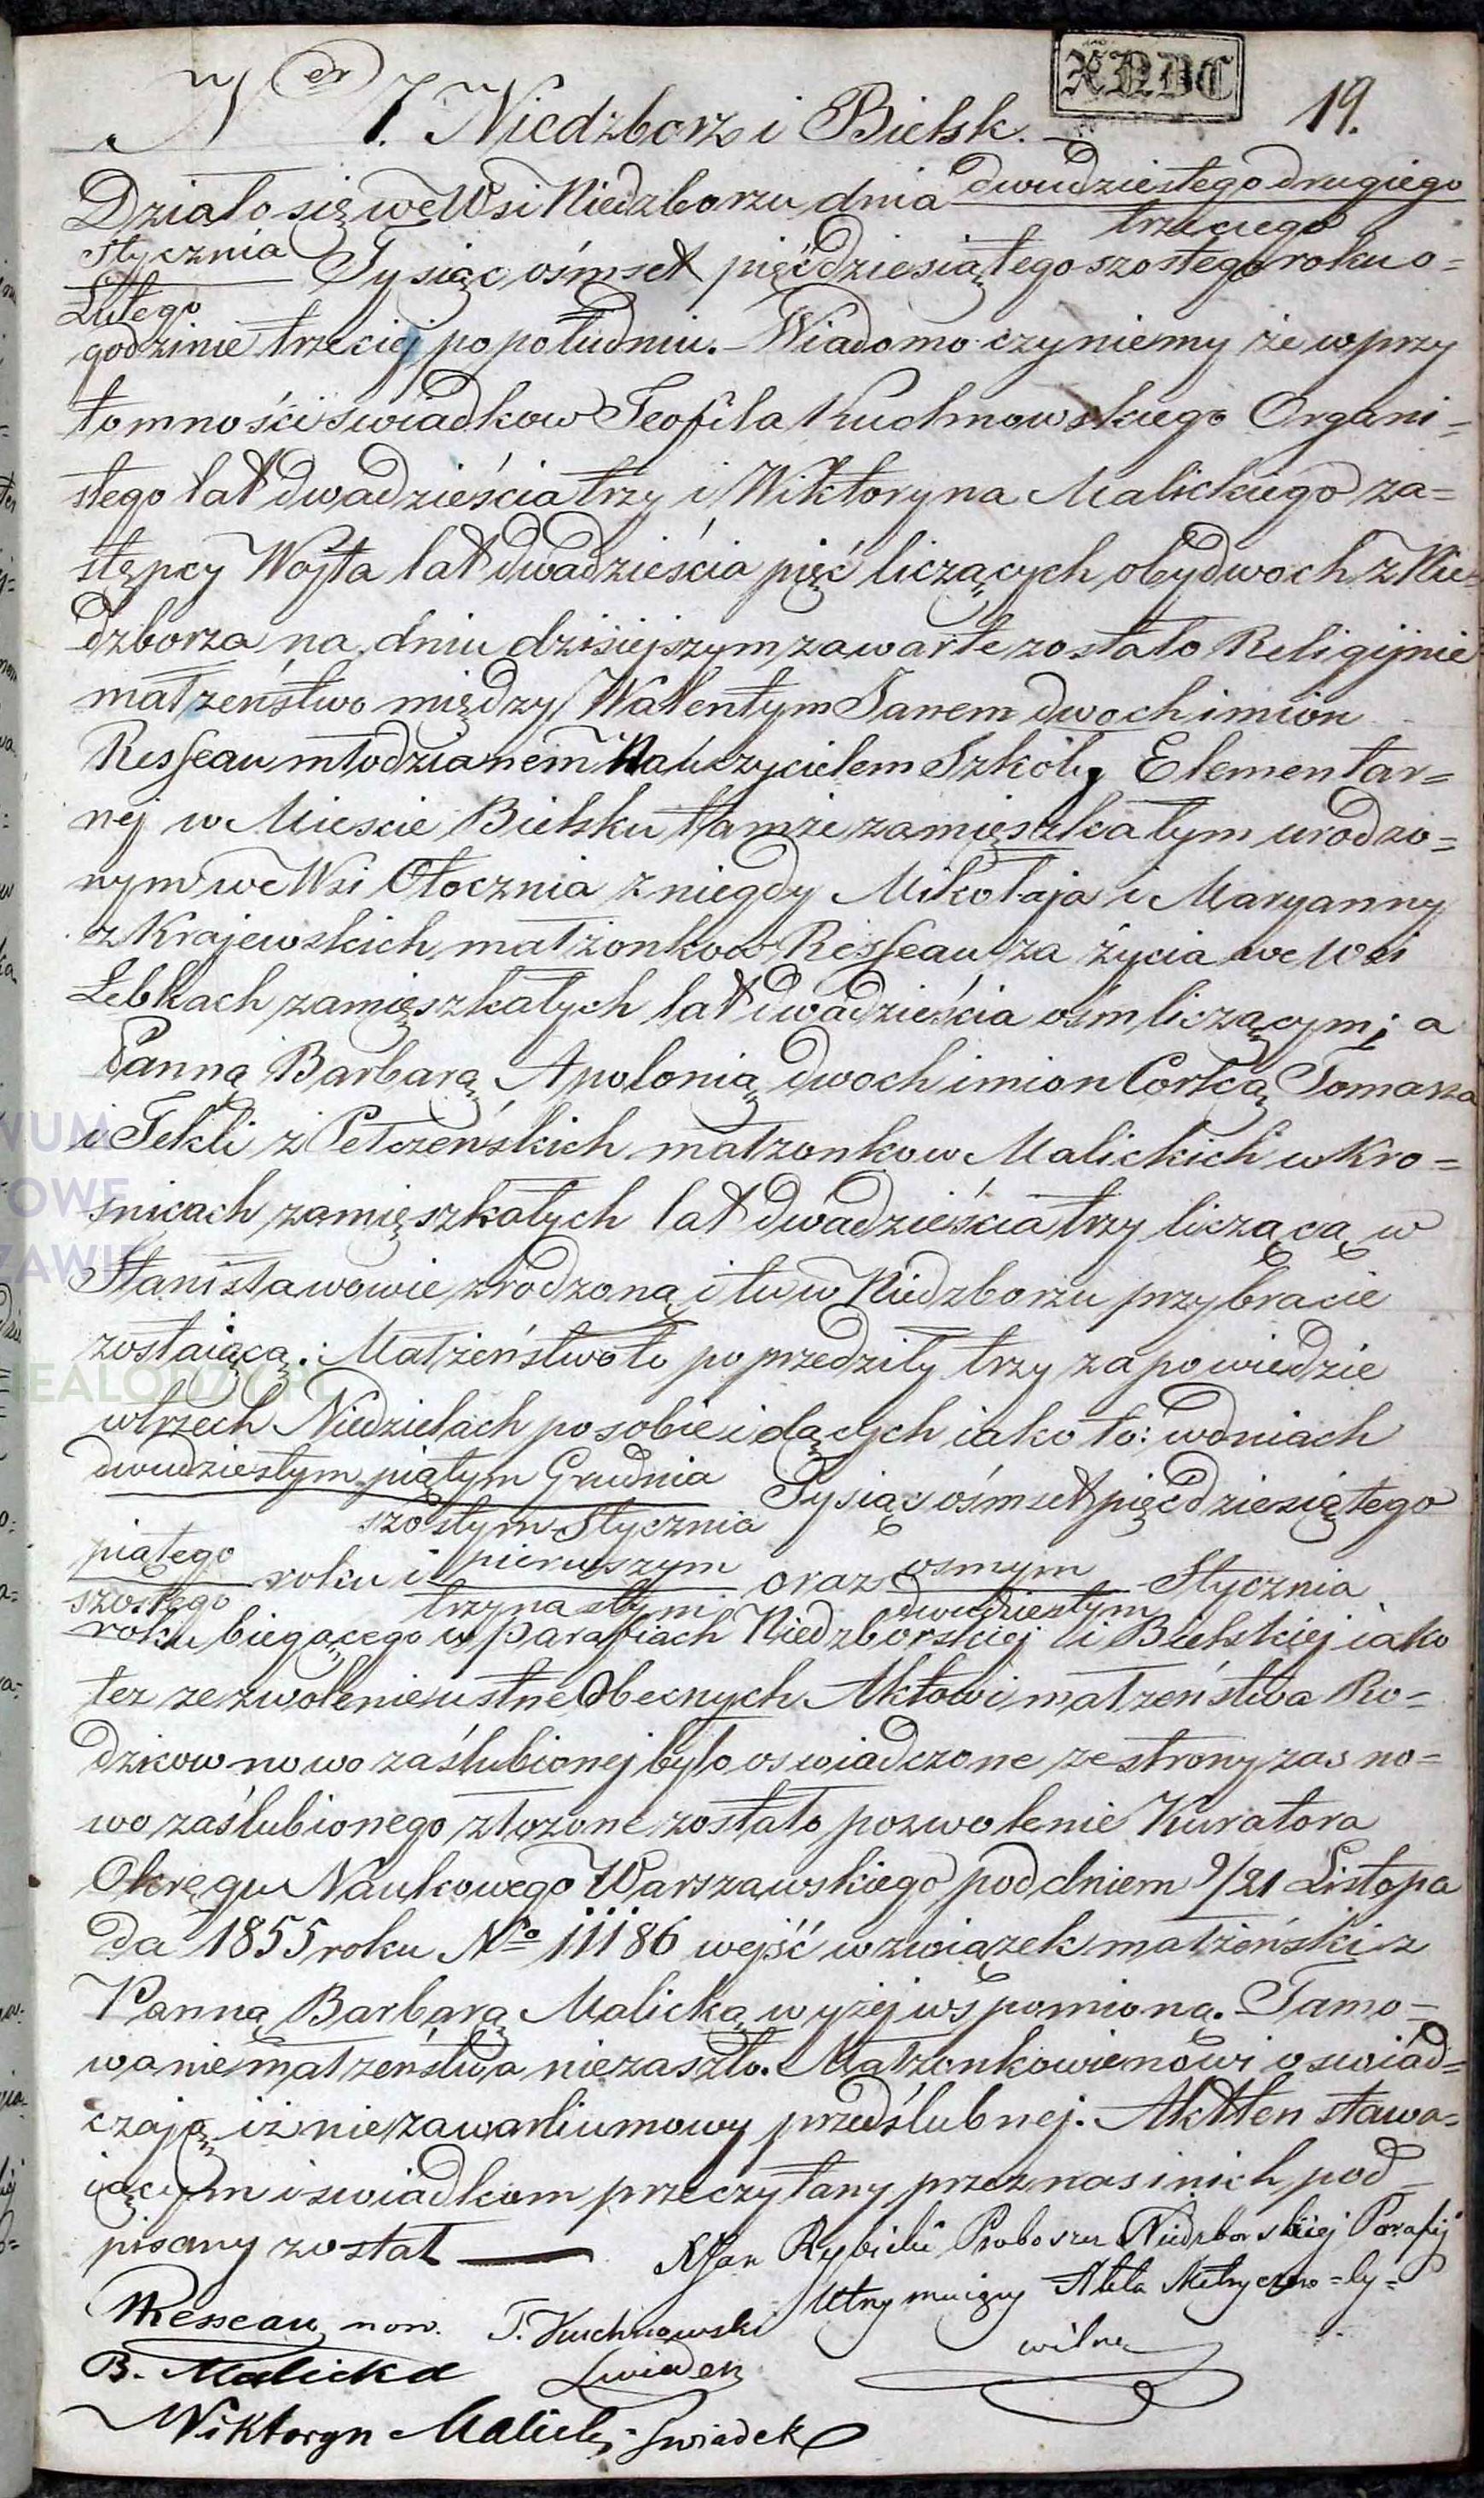 Ner 7. Niedzborz i Bielsk.
19.
Działo się we Wsi Niedzborzu dnia dwudziestego drugiego
trzeciego
Stycznia Tysiąc ośmset pięćdziesiątego szostego roku o=
Lutego
godzinie trzeciej po południu. Wiadomo czyniemy że w przy
tomności swiadkow Teofila Kuchnowskiego Organi=
stego lat dwadzieścia trzy i Wiktoryna Malickiego za=
stępcy Wojta lat dwadzieścia pięć liczących, obydwoch z Nie=
dzborza na dniu dzisiejszym zawarte zostało Religijnie
małzeństwo między Walentym Janem dwoch imion
Resseau młodzianem Nauczycielem Szkoły Elementar=
nej w Miescie Bielsku tamże zamięszkałym urodzo=
nym we Wsi Otocznia z niegdy Mikołaja i Maryanny
z Krajewskich małżonkow Resseau za życia we Wsi
Lebkach zamięszkałych lat dwadzieścia ośm liczącym; a
Panną Barbarą Apolonią dwoch imion Corką Tomasza
i Tekli z Pełczeńskich małzonkow Malickich w Kro=
śnicach zamięszkałych lat dwadzieścia trzy liczącą w
Stanisławowie zrodzoną i tu w Niedzborzu przy bracie
zostaiącą. Małżeństwo to poprzedziły trzy zapowiedzie
w trzech Niedzielach po sobie idących iako to: w dniach
dwudziestym piątym Grudnia Tysiąc ośmset pięćdziesiątego
szostym Stycznia
piątego roku i pierwszym oraz osmym Stycznia
szostego trzynastym dwudziestym
roku biegącego w parafiach Niedzborskiej i Bielskiej iako
tez zezwolenie ustne Obecnych Aktowi małżeństwa Ro=
dzicow nowo zaślubionej było oswiadczone ze strony zas no=
wo zaślubionego złozone zostało pozwolenie Kuratora
Okręgu Naukowego Warszawskiego pod dniem 9/21 Listopa
da 1855 roku No 11186 wejść w związek małżeński z
Panną Barbarą Malicką wyżej wspomioną. Tamo=
wanie małżeństwa niezaszło. Małżonkowie nowi oswiad=
czają iż nie zawarli umowy przedślubnej. Akt ten stawa=
iącym i swiadkom przeczytany przez nas i nich pod=
pisany został
X Jan Rybicki Proboszcz Niedzborskiej Parafij
Utrzymuiący Akta
Resseau now. T. Kuchnowski
B. Malicka Swiadek
Wiktoryn Malicki Swiadek